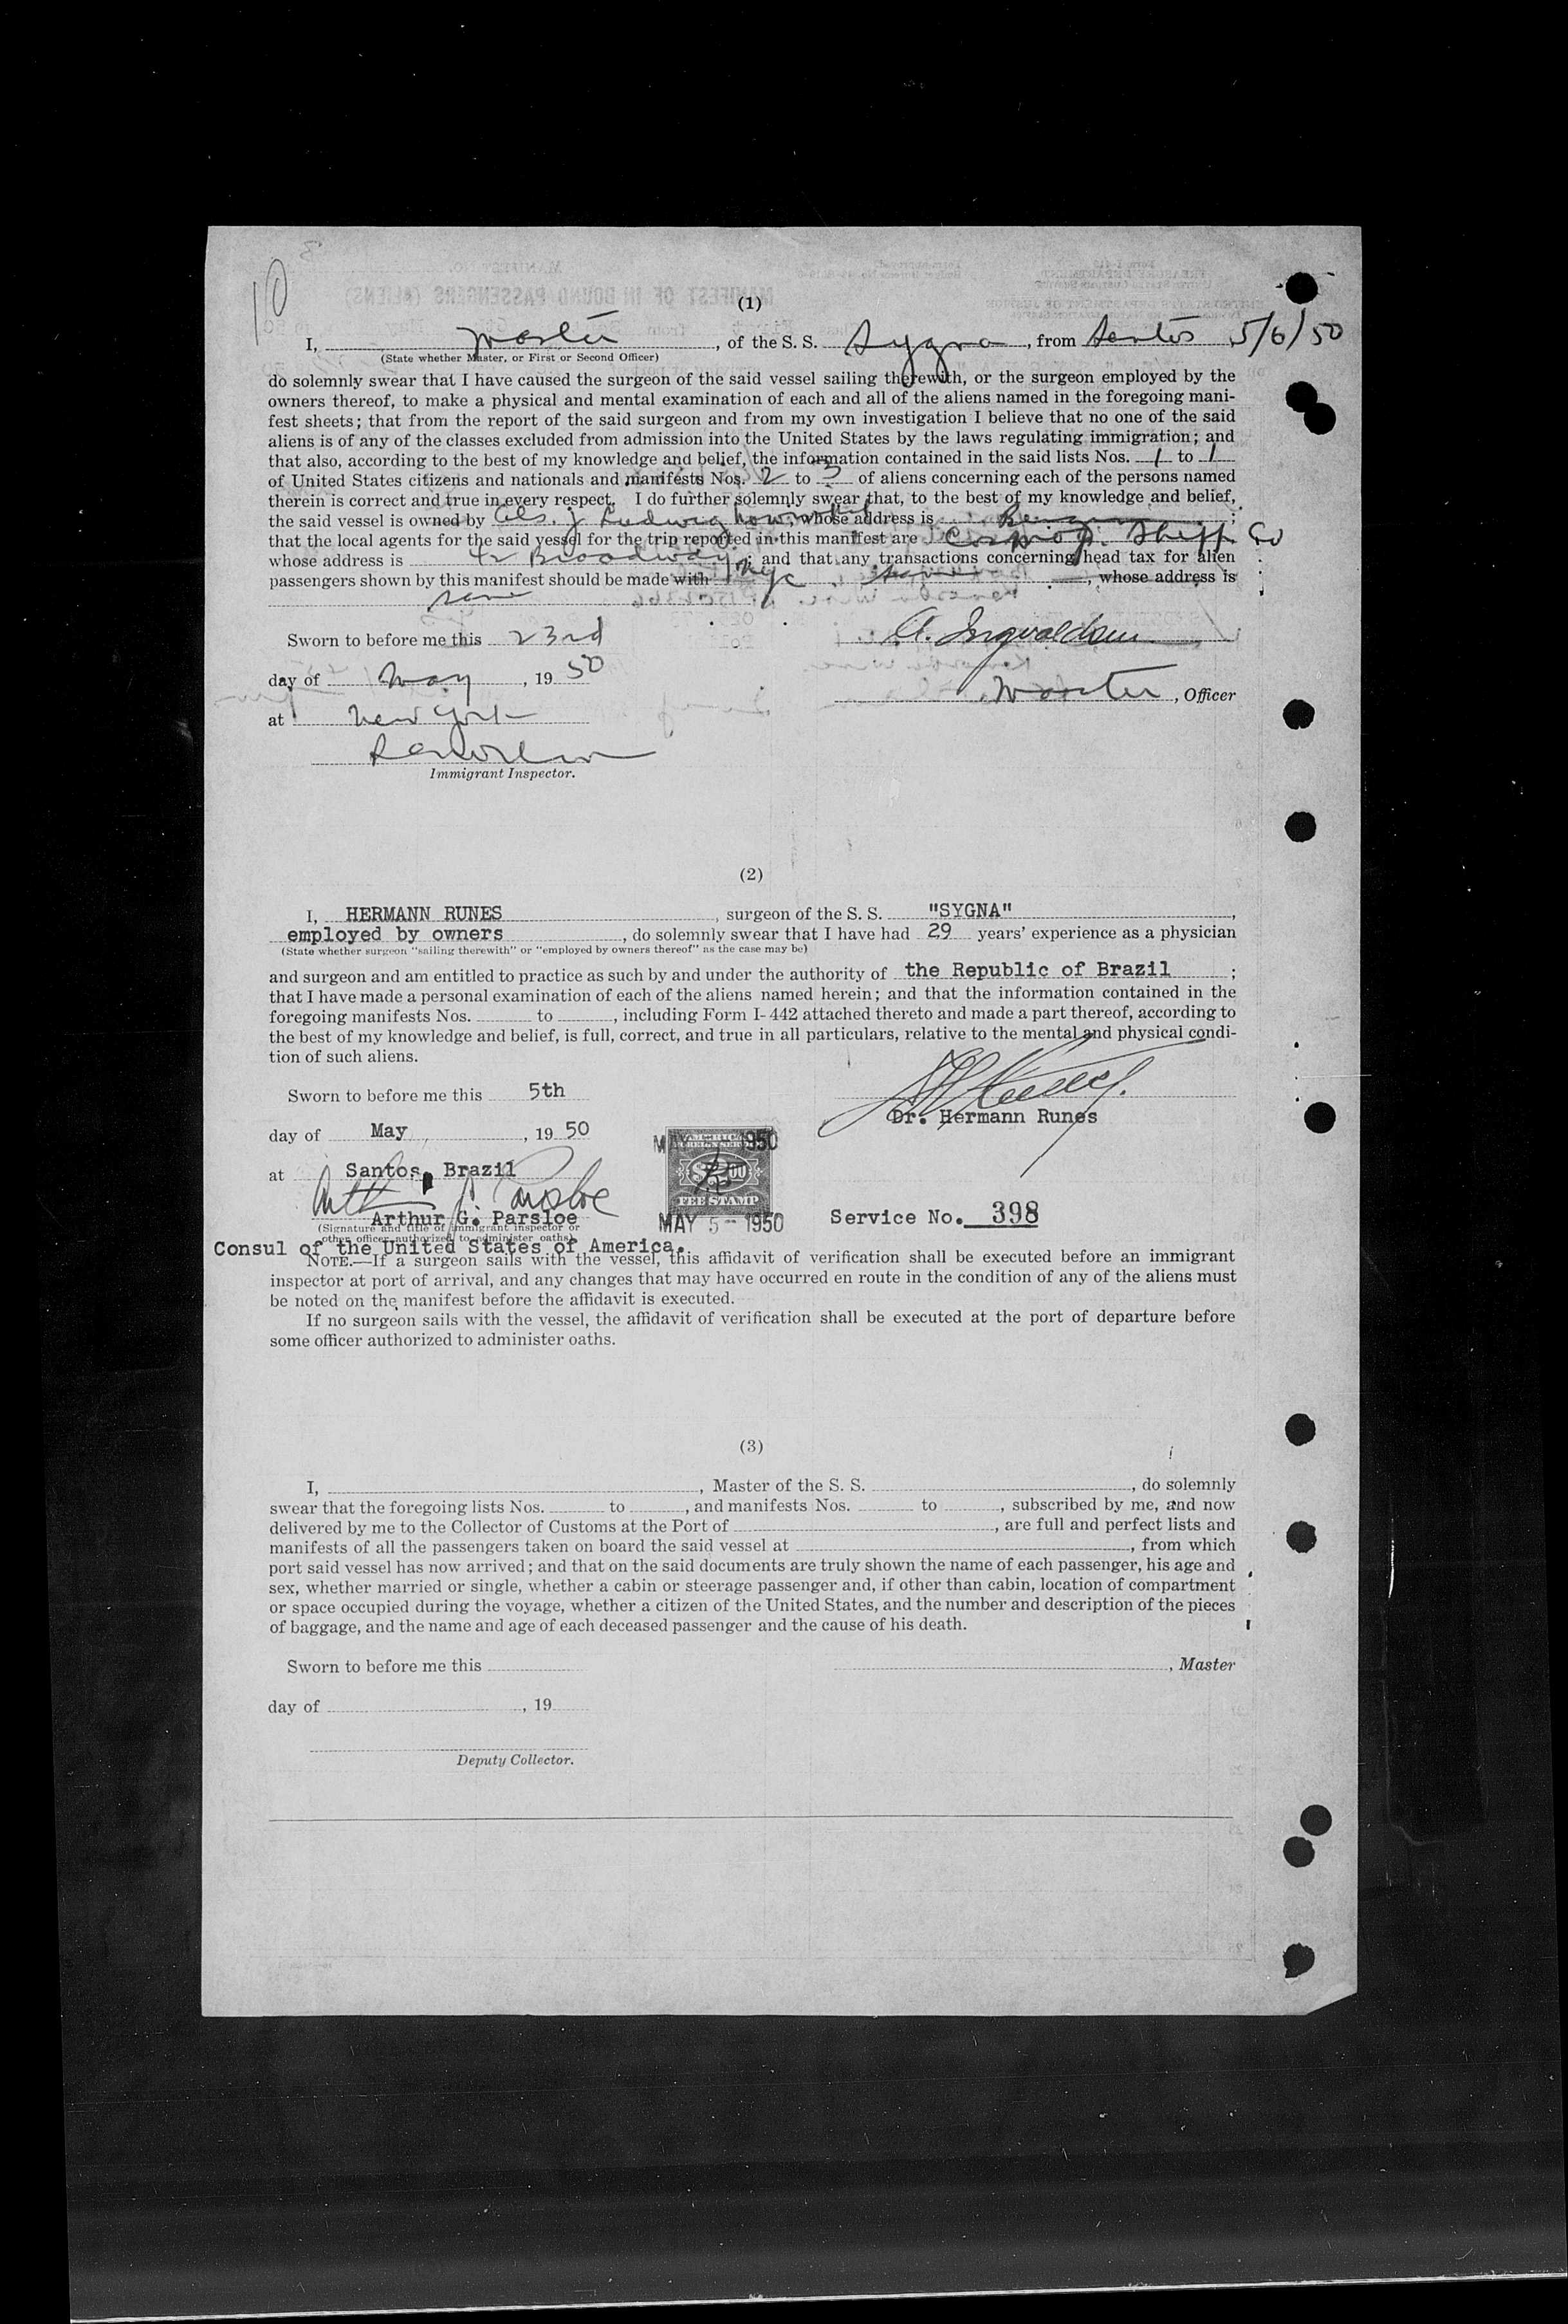 10
(1)
I, Master, of the S. S. Sygna, from Santos 5/6/50
(State whether Master, or First or Second Officer)
do solemnly swear that I have caused the surgeon of the said vessel sailing therewith, or the surgeon employed by the
owners thereof, to make a physical and mental examination of each and all of the aliens named in the foregoing mani-
fest sheets; that from the report of the said surgeon and from my own investigation I believe that no one of the said
aliens is of any of the classes excluded from admission into the United States by the laws regulating immigration; and
that also, according to the best of my knowledge and belief, the information contained in the said lists Nos. 1 to 1
of United States citizens and nationals and manifests Nos. 2 to 3 of aliens concerning each of the persons named
therein is correct and true in every respect. I do further solemnly swear that, to the best of my knowledge and belief,
the said vessel is owned by J Ludwig, whose address is ;
that the local agents for the said vessel for the trip reported in this manifest are Co
whose address is 42 Broadway NYC; and that any transactions concerning head tax for alien
passengers shown by this manifest should be made with same, whose address is
same
Sworn to before me this 23rd
A. Ingvaldsen
day of May, 1950
Master, Officer
at New York
Immigrant Inspector.
(2)
I, HERMANN RUNES, surgeon of the S. S. "SYGNA",
employed by owners, do solemnly swear that I have had 29 years' experience as a physician
(State whether surgeon "sailing therewith" or "employed by owners thereof" as the case may be)
and surgeon and am entitled to practice as such by and under the authority of the Republic of Brazil;
that I have made a personal examination of each of the aliens named herein; and that the information contained in the
foregoing manifests Nos. to , including Form I-442 attached thereto and made a part thereof, according to
the best of my knowledge and belief, is full, correct, and true in all particulars, relative to the mental and physical condi-
tion of such aliens.
Sworn to before me this 5th
Dr. Hermann Runes
day of May, 1950
at Santos, Brazil
$2.00
FEE STAMP
MAY 5 - 1950
Service No. 398
Arthur G. Parsloe
Arthur G. Parsloe
(Signature and title of immigrant inspector or
other officer authorized to administer oaths)
Consul of the United States of America.
NOTE.—If a surgeon sails with the vessel, this affidavit of verification shall be executed before an immigrant
inspector at port of arrival, and any changes that may have occurred en route in the condition of any of the aliens must
be noted on the manifest before the affidavit is executed.
If no surgeon sails with the vessel, the affidavit of verification shall be executed at the port of departure before
some officer authorized to administer oaths.
(3)
I, , Master of the S. S. , do solemnly
swear that the foregoing lists Nos. to , and manifests Nos. to , subscribed by me, and now
delivered by me to the Collector of Customs at the Port of , are full and perfect lists and
manifests of all the passengers taken on board the said vessel at , from which
port said vessel has now arrived; and that on the said documents are truly shown the name of each passenger, his age and
sex, whether married or single, whether a cabin or steerage passenger and, if other than cabin, location of compartment
or space occupied during the voyage, whether a citizen of the United States, and the number and description of the pieces
of baggage, and the name and age of each deceased passenger and the cause of his death.
Sworn to before me this
, Master
day of , 19
Deputy Collector.